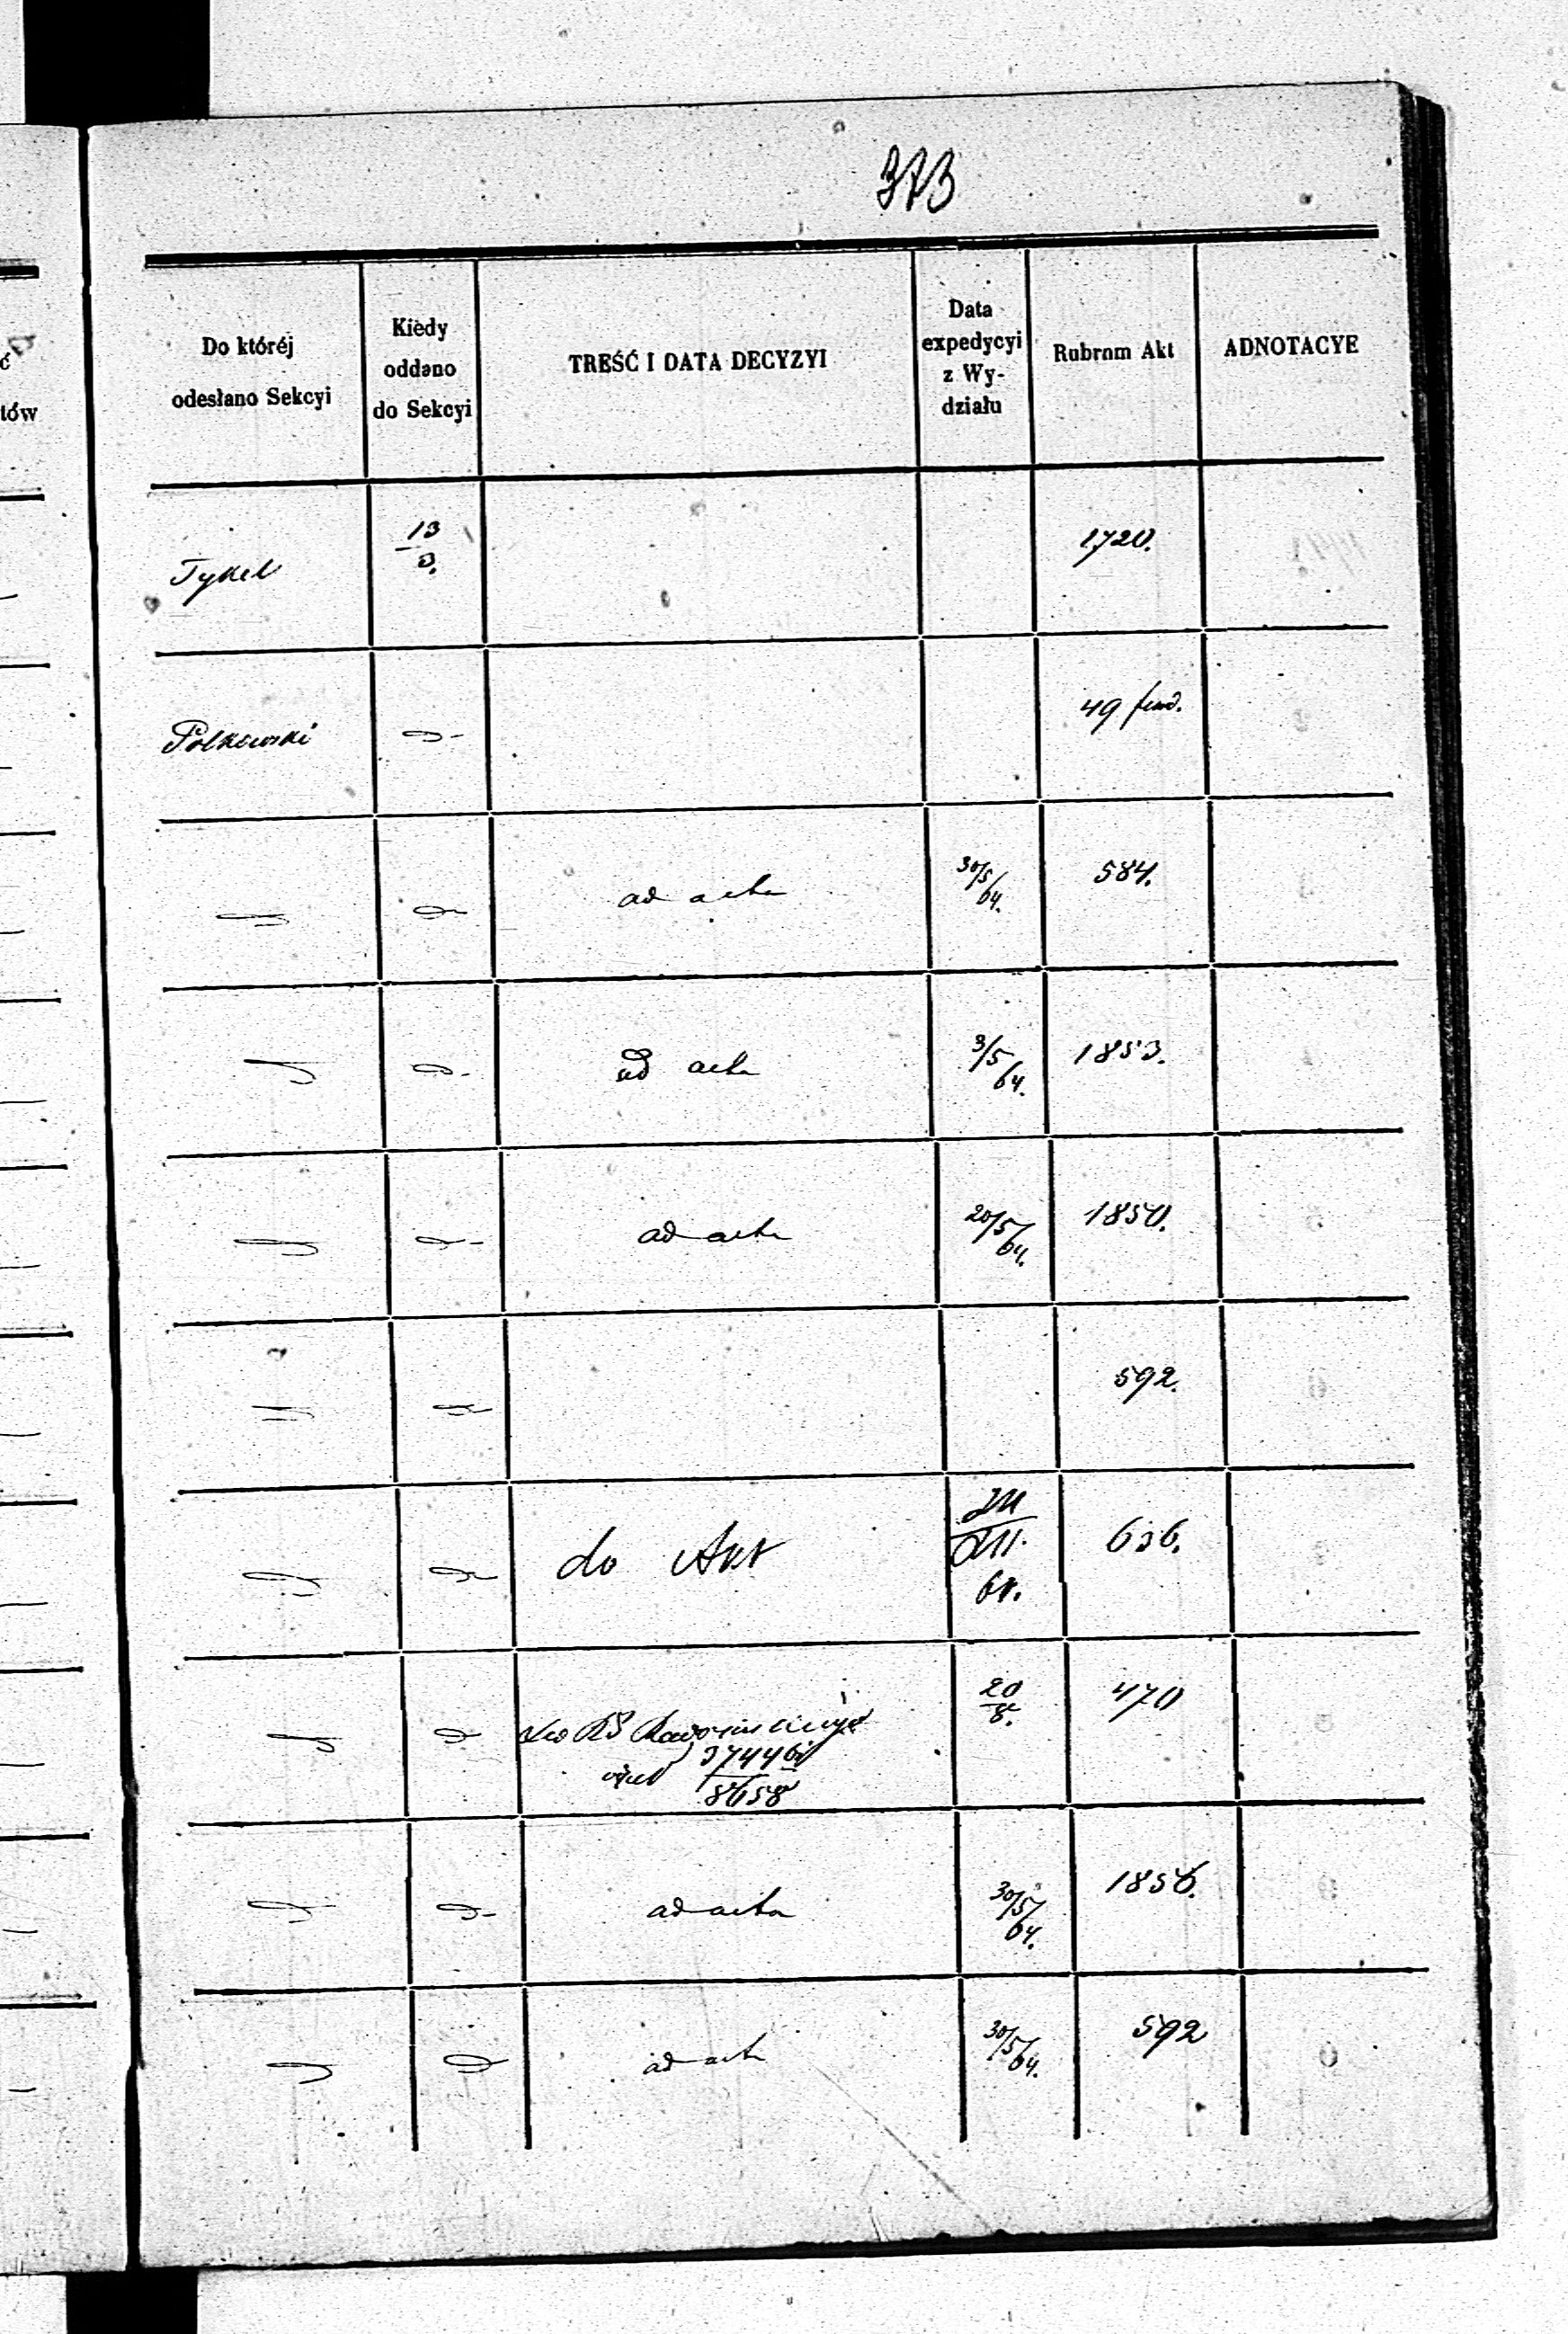 373
Do któréj
odesłano Sekcyi
Kiedy
oddano
do Sekcyi
TREŚĆ I DATA DECYZYI
Data
expedycyi
z Wy-
działu
Rubrum Akt
ADNOTACYE
Tykel
13
3.
1720.
Polkowski
49 fund.
ad acta
30/5/64.
584.
ad acta
3/5/64.
1853.
ad acta
20/5/64.
1850.
592.
do Akt
64.
636.
Do RS
37446
8658
20
8.
470
ad acta
30/5/64.
1856.
ad acta
30/5/64.
592